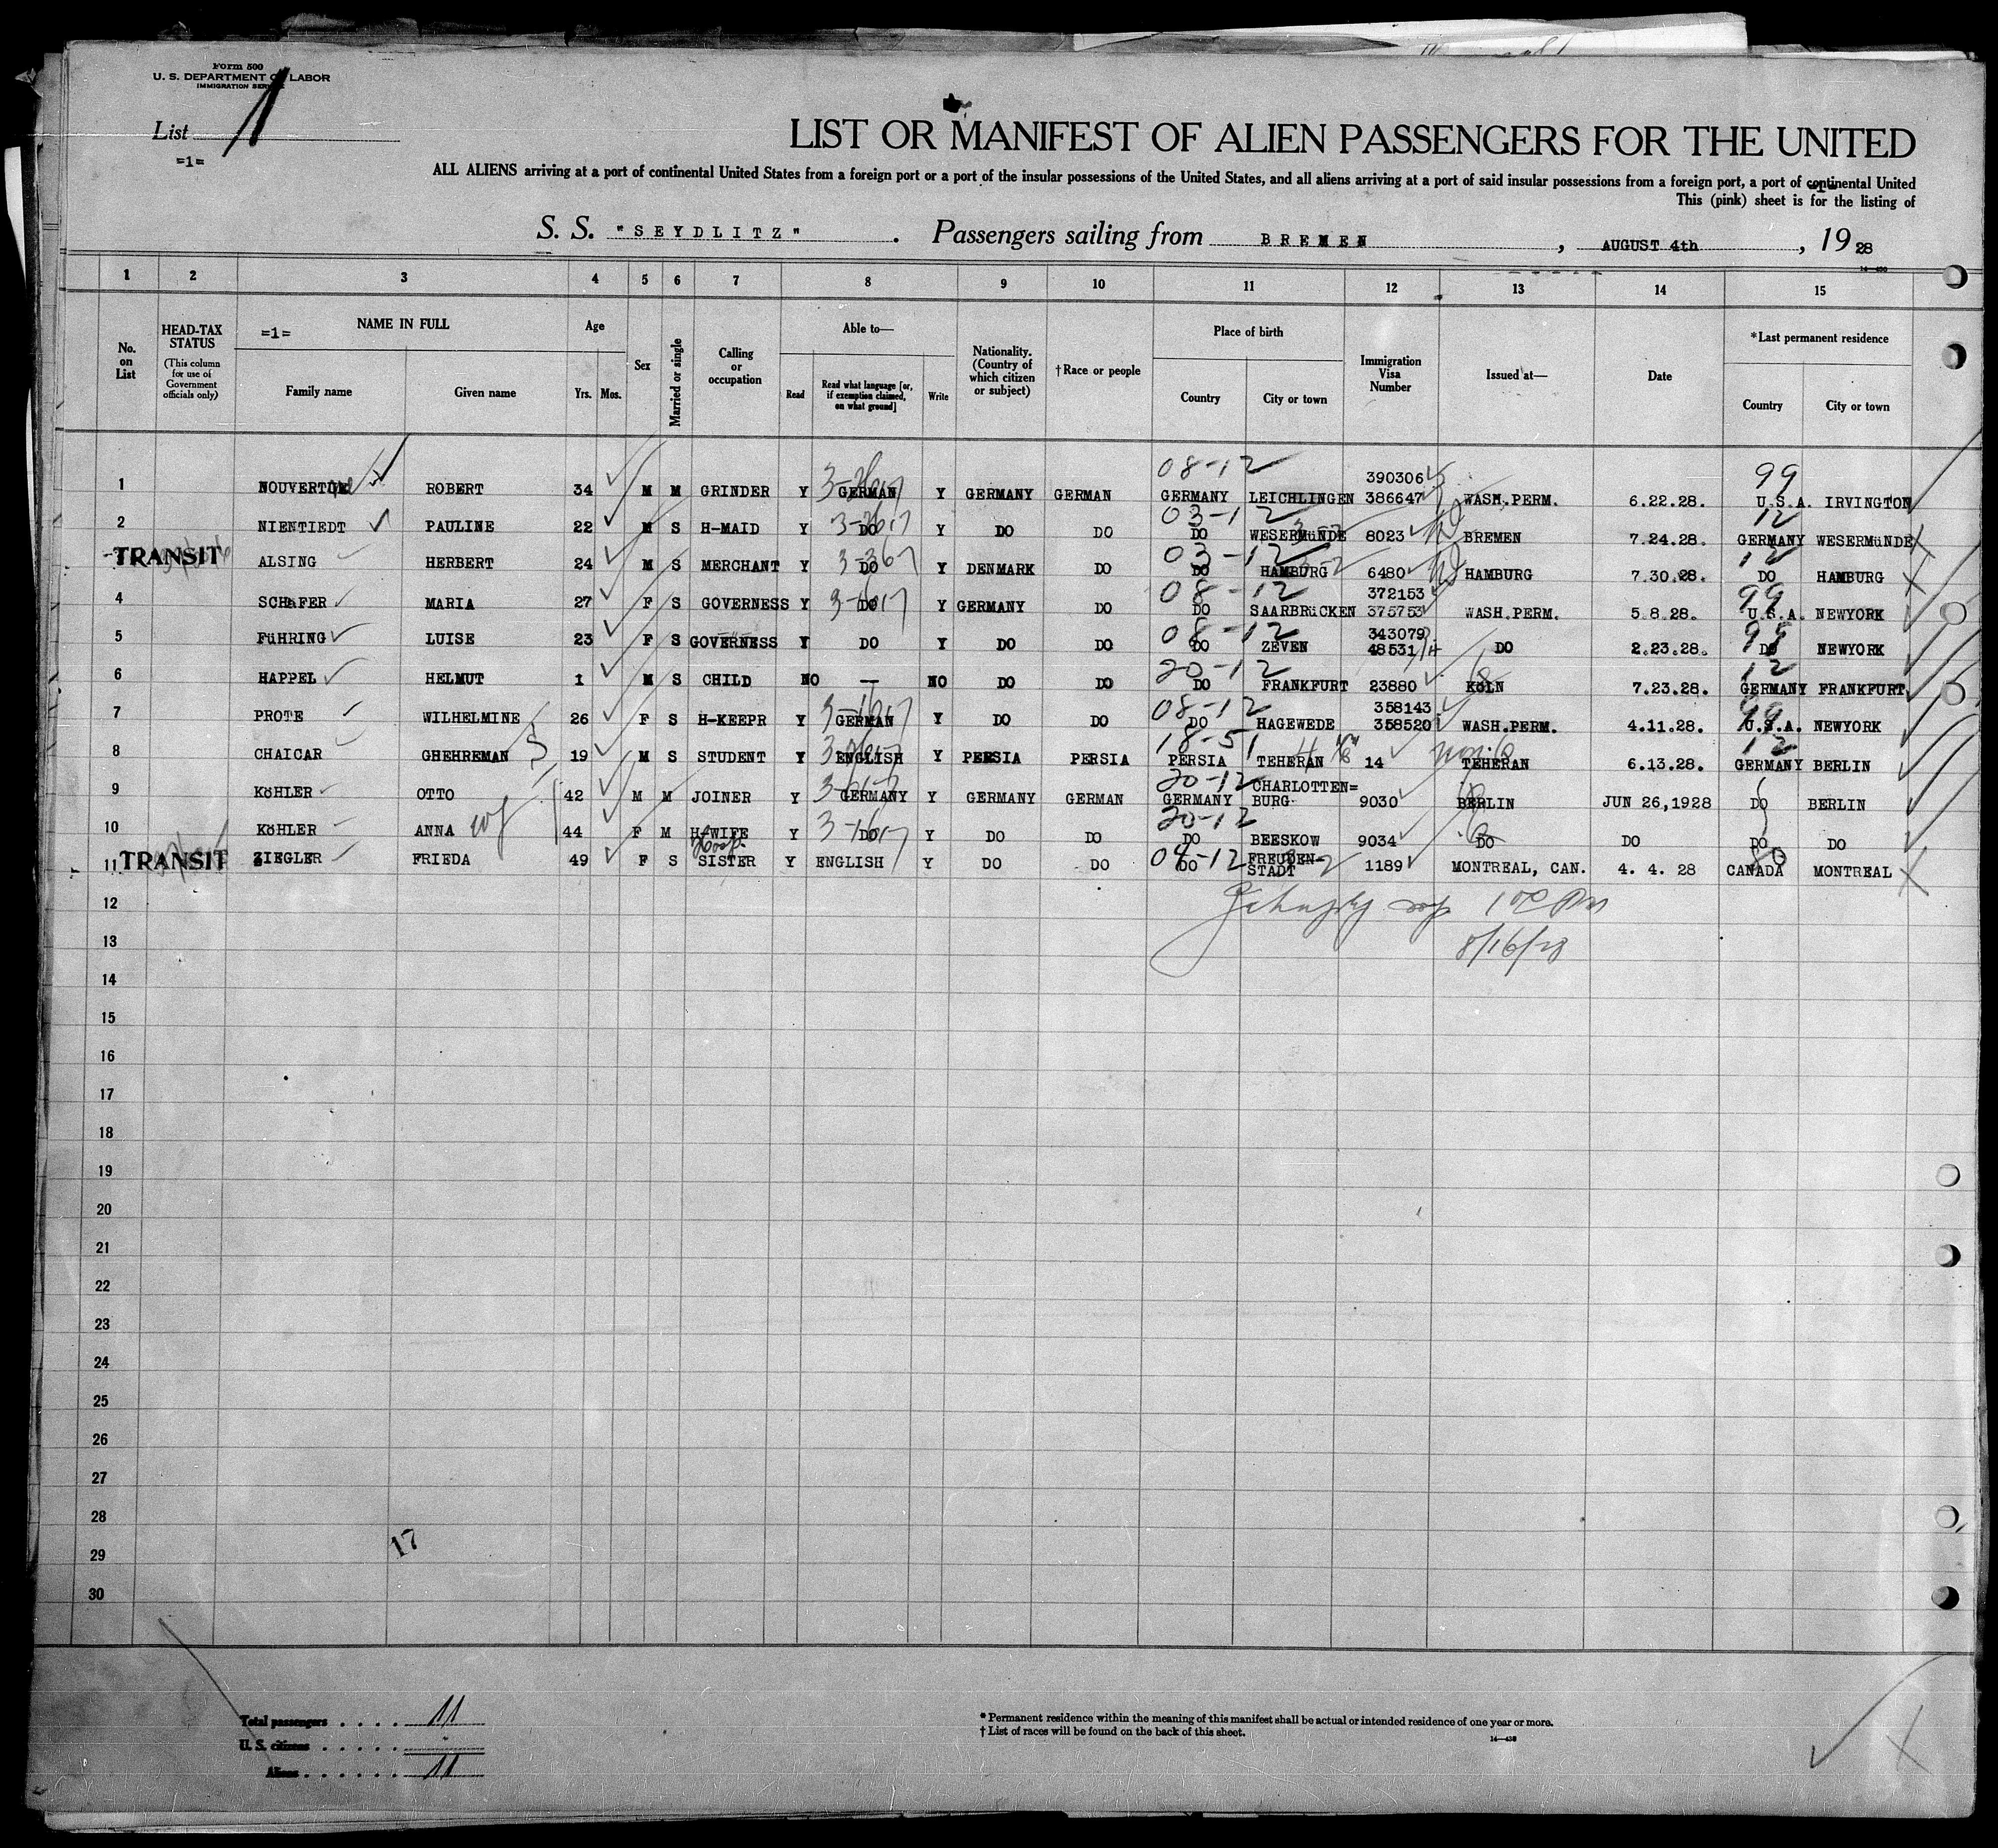 Form 500
U. S. DEPARTMENT OF LABOR
IMMIGRATION SERVICE
List 1
=1=
LIST OR MANIFEST OF ALIEN PASSENGERS FOR THE UNITED
ALL ALIENS arriving at a port of continental United States from a foreign port or a port of the insular possessions of the United States, and all aliens arriving at a port of said insular possessions from a foreign port, a port of continental United
This (pink) sheet is for the listing of
S. S. "SEYDLITZ" . Passengers sailing from BREMEN , AUGUST 4th , 1928
1 2 3 4 5 6 7 8 9 10 11 12 13 14 15
No. on List
HEAD-TAX STATUS (This column for use of Government officials only)
=1= NAME IN FULL
Family name Given name
Age Yrs. Mos.
Sex
Married or single
Calling or occupation
Able to— Read Read what language [or, if exemption claimed, on what ground] Write
Nationality. (Country of which citizen or subject)
†Race or people
Place of birth Country City or town
Immigration Visa Number
Issued at—
Date
*Last permanent residence Country City or town
08-12 390306 99
1 NOUVERTNE ROBERT 34 M M GRINDER Y GERMAN Y GERMANY GERMAN GERMANY LEICHLINGEN 386647 WASH.PERM. 6.22.28. U.S.A. IRVINGTON
03-12 12
2 NIENTIEDT PAULINE 22 M S H-MAID Y DO Y DO DO DO WESERMüNDE 8023 BREMEN 7.24.28. GERMANY WESERMüNDE
03-12 12
TRANSIT ALSING HERBERT 24 M S MERCHANT Y DO Y DENMARK DO DO HAMBURG 6480 HAMBURG 7.30.28. DO HAMBURG
08-12 372153 99
4 SCHäFER MARIA 27 F S GOVERNESS Y DO Y GERMANY DO DO SAARBRüCKEN 375753 WASH.PERM. 5.8.28. U.S.A. NEWYORK
08-12 343079 99
5 FüHRING LUISE 23 F S GOVERNESS Y DO Y DO DO DO ZEVEN 48531 DO 2.23.28. DO NEWYORK
20-12 12
6 HAPPEL HELMUT 1 M S CHILD NO — NO DO DO DO FRANKFURT 23880 KöLN 7.23.28. GERMANY FRANKFURT
08-12 358143 99
7 PROTE WILHELMINE 26 F S H-KEEPR Y GERMAN Y DO DO DO HAGEWEDE 358520 WASH.PERM. 4.11.28. U.S.A. NEWYORK
18-51 12
8 CHAICAR GHEHREMAN 19 M S STUDENT Y ENGLISH Y PERSIA PERSIA PERSIA TEHERAN 14 TEHERAN 6.13.28. GERMANY BERLIN
20-12
9 KöHLER OTTO 42 M M JOINER Y GERMANY Y GERMANY GERMAN GERMANY CHARLOTTEN= BURG 9030 BERLIN JUN 26,1928 DO BERLIN
20-12
10 KöHLER ANNA wf 44 F M H-WIFE Y DO Y DO DO DO BEESKOW 9034 DO DO DO DO
Hosp.
11 TRANSIT ZIEGLER FRIEDA 49 F S SISTER Y ENGLISH Y DO DO 04-12 DO FREUDEN- STADT 1189 MONTREAL, CAN. 4. 4. 28 CANADA MONTREAL
12
8/16/28
13
14
15
16
17
18
19
20
21
22
23
24
25
26
27
28
17
29
30
Total passengers . . . . 11
U. S. citizens . . . . .
Aliens . . . . . . 11
* Permanent residence within the meaning of this manifest shall be actual or intended residence of one year or more.
† List of races will be found on the back of this sheet.
14—438